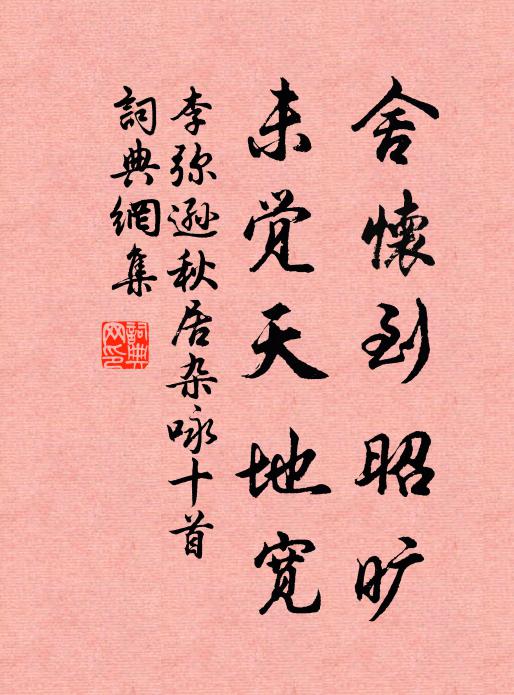 舍懷到昭旷
未觉天地宽
李弥遜秋居杂咏十首
詞典網集
詞典网印